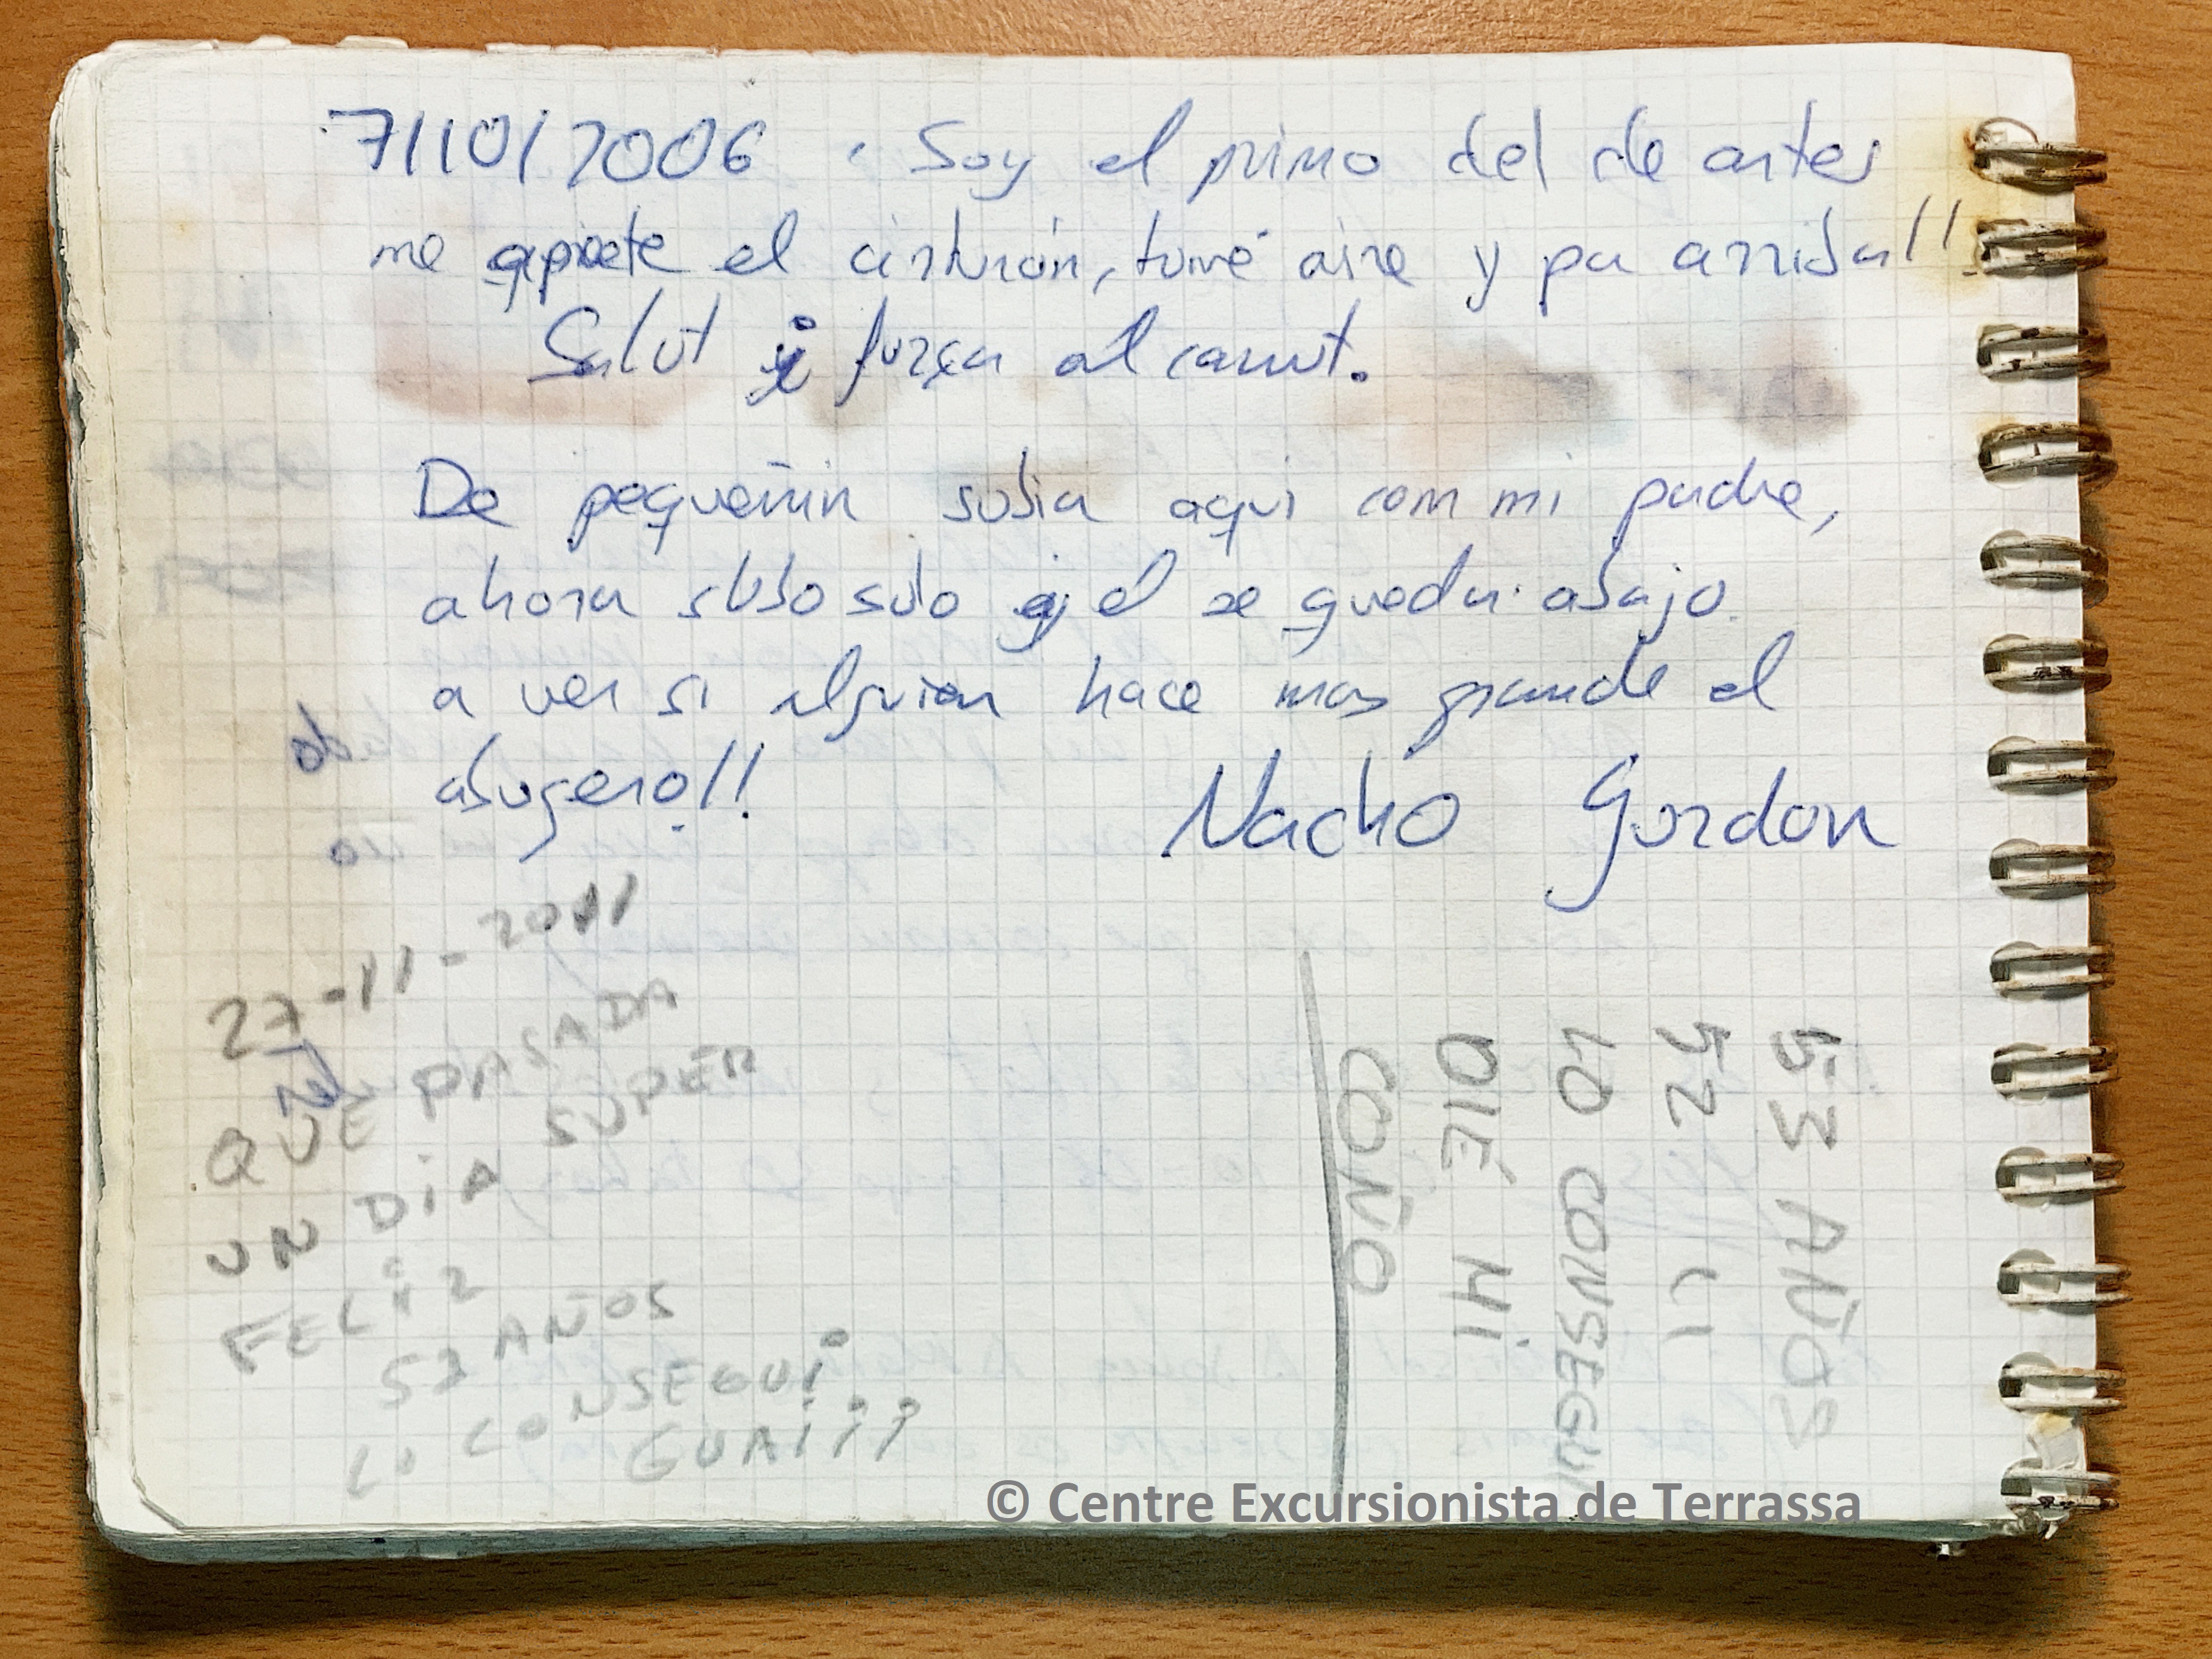 7/10/2006. Soy el primo del de antes
me apriete el cinturón, tomé aire y pa arriba!!
Salut i força al canut.
De pequeñin subia aqui com mi padre,
ahora subo solo y el se queda abajo.
a ver si alguien hace mas grande el
abugero!!
Nacho Gordon
27-11-2011
QUE PASADA
UN DIA SUPER
FELIZ
52 AÑOS
LO CONSEGUI
GUAI
53 AÑOS
52 11
LO CONSEGUI
OIÉ 41
COÑO
© Centre Excursionista de Terrassa